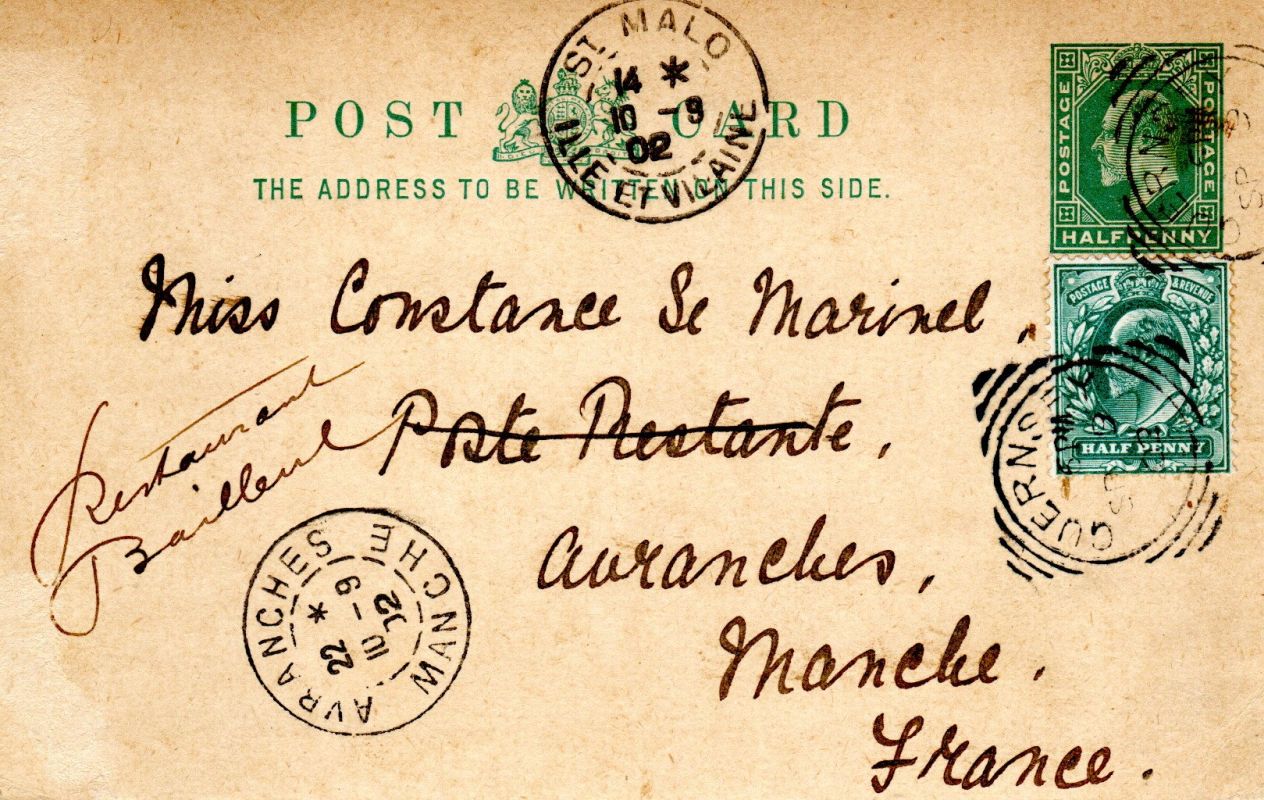 POST CARD
THE ADDRESS TO BE WRITTEN ON THIS SIDE.
ST. MALO
14 *
10 - 9
02
ILLE ET VILAINE
POSTAGE POSTAGE
HALF PENNY
POSTAGE & REVENUE
HALF PENNY
GUERNSEY
SP 9
Miss Constance Le Marinel,
Poste Restante,
Restaurant
Bailleul
Avranches,
Manche.
France.
AVRANCHES
22 *
10 - 9
02
MANCHE